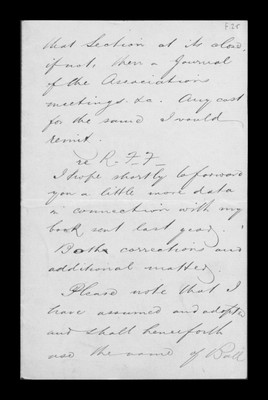 that Section at its close,
if not, then a Journal
of the Associations
meetings &c. Any cost
for the same I would
remit.
re R. F. F.
I hope shortly to forward
you a little more data
in connection with my
book sent last year.
Both corrections and
additional matter.
Please note that I
have assumed and adopted
and shall henceforth
use the name of Ball